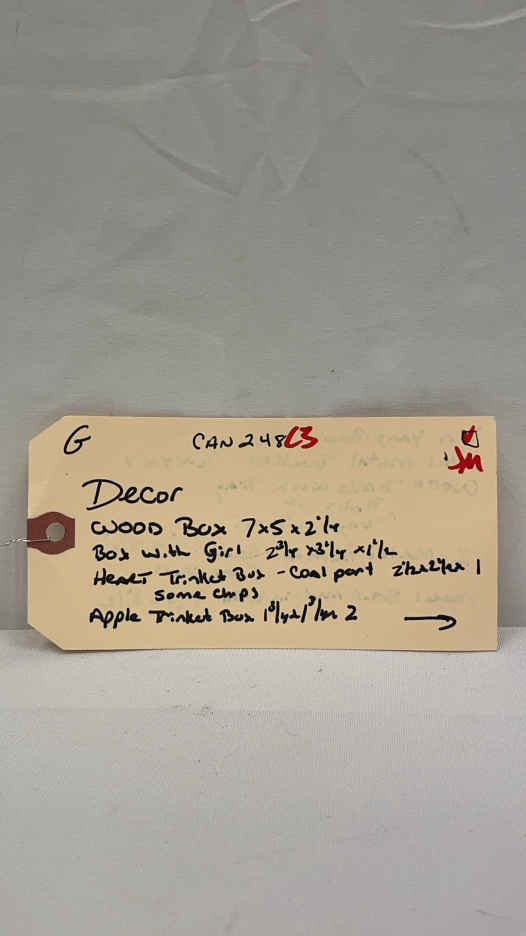 G CAN 248 C3
Decor
WOOD Box 7x5x2 1/4
Box with Girl 2 3/4 x3 1/4 x1 1/2
Heart Trinket Box - Coal port 2 1/2x2 1/2x 1
some chips
Apple Trinket Box 1 3/4x1 3/4x 2 →